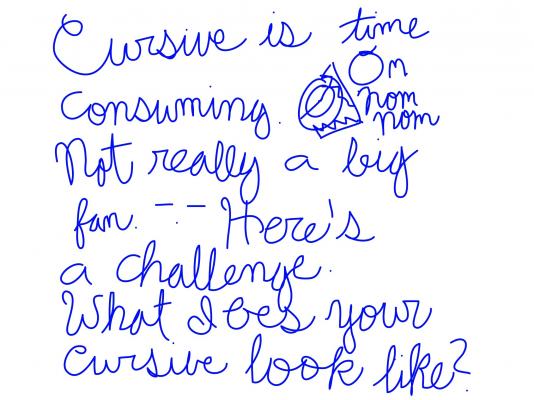 Cursive is time
On
consuming. nom
nom
Not really a big
fan. -.- Here's
a challenge.
What does your
cursive look like?